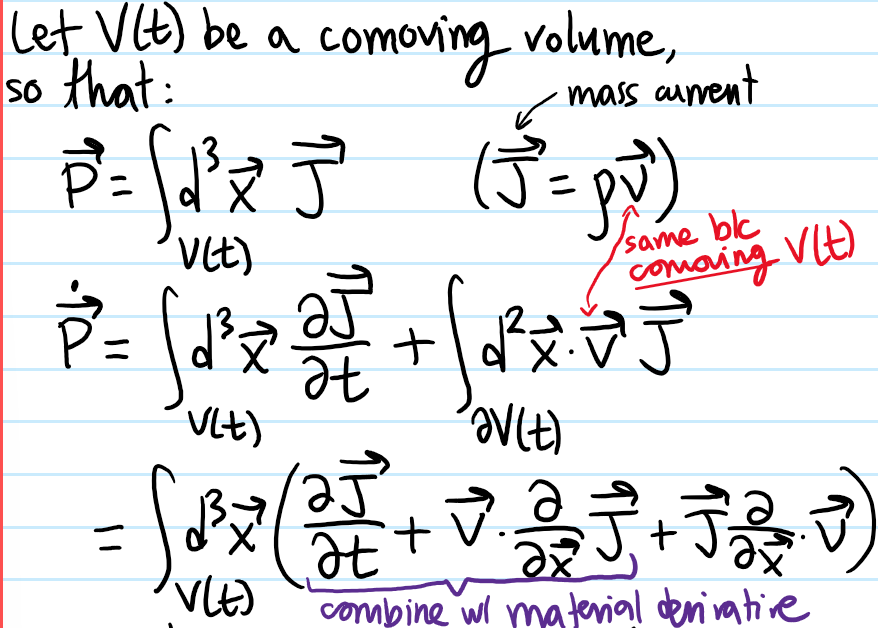 Let V(t) be a comoving volume,
so that:
mass current
P⃗ = ∫_{V(t)} d³x⃗ J⃗ (J⃗ = ρv⃗)
same b/c
comoving V(t)
P⃗̇ = ∫_{V(t)} d³x⃗ ∂J⃗/∂t + ∫_{∂V(t)} d²x⃗ · v⃗ J⃗
= ∫_{V(t)} d³x⃗ (∂J⃗/∂t + v⃗ · ∂/∂x⃗ J⃗ + J⃗ ∂/∂x⃗ · v⃗)
combine w/ material derivative